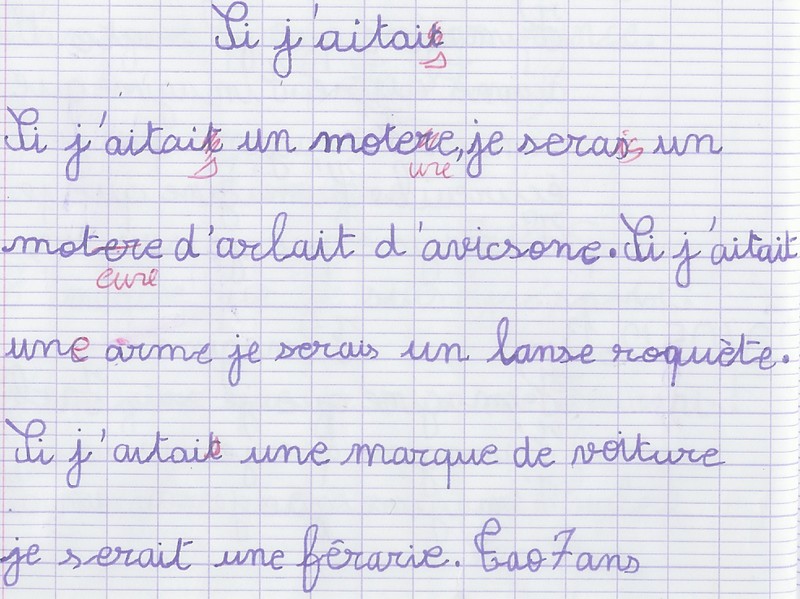 Si j'aitait
s
Si j'aitait un motere, je serais un
s ure
motere d'arlait d'avicsone. Si j'aitait
eure
une arme je serais un lanse roquète.
Si j'aitait une marque de voiture
je serait une fêrarie. Eao 7 ans